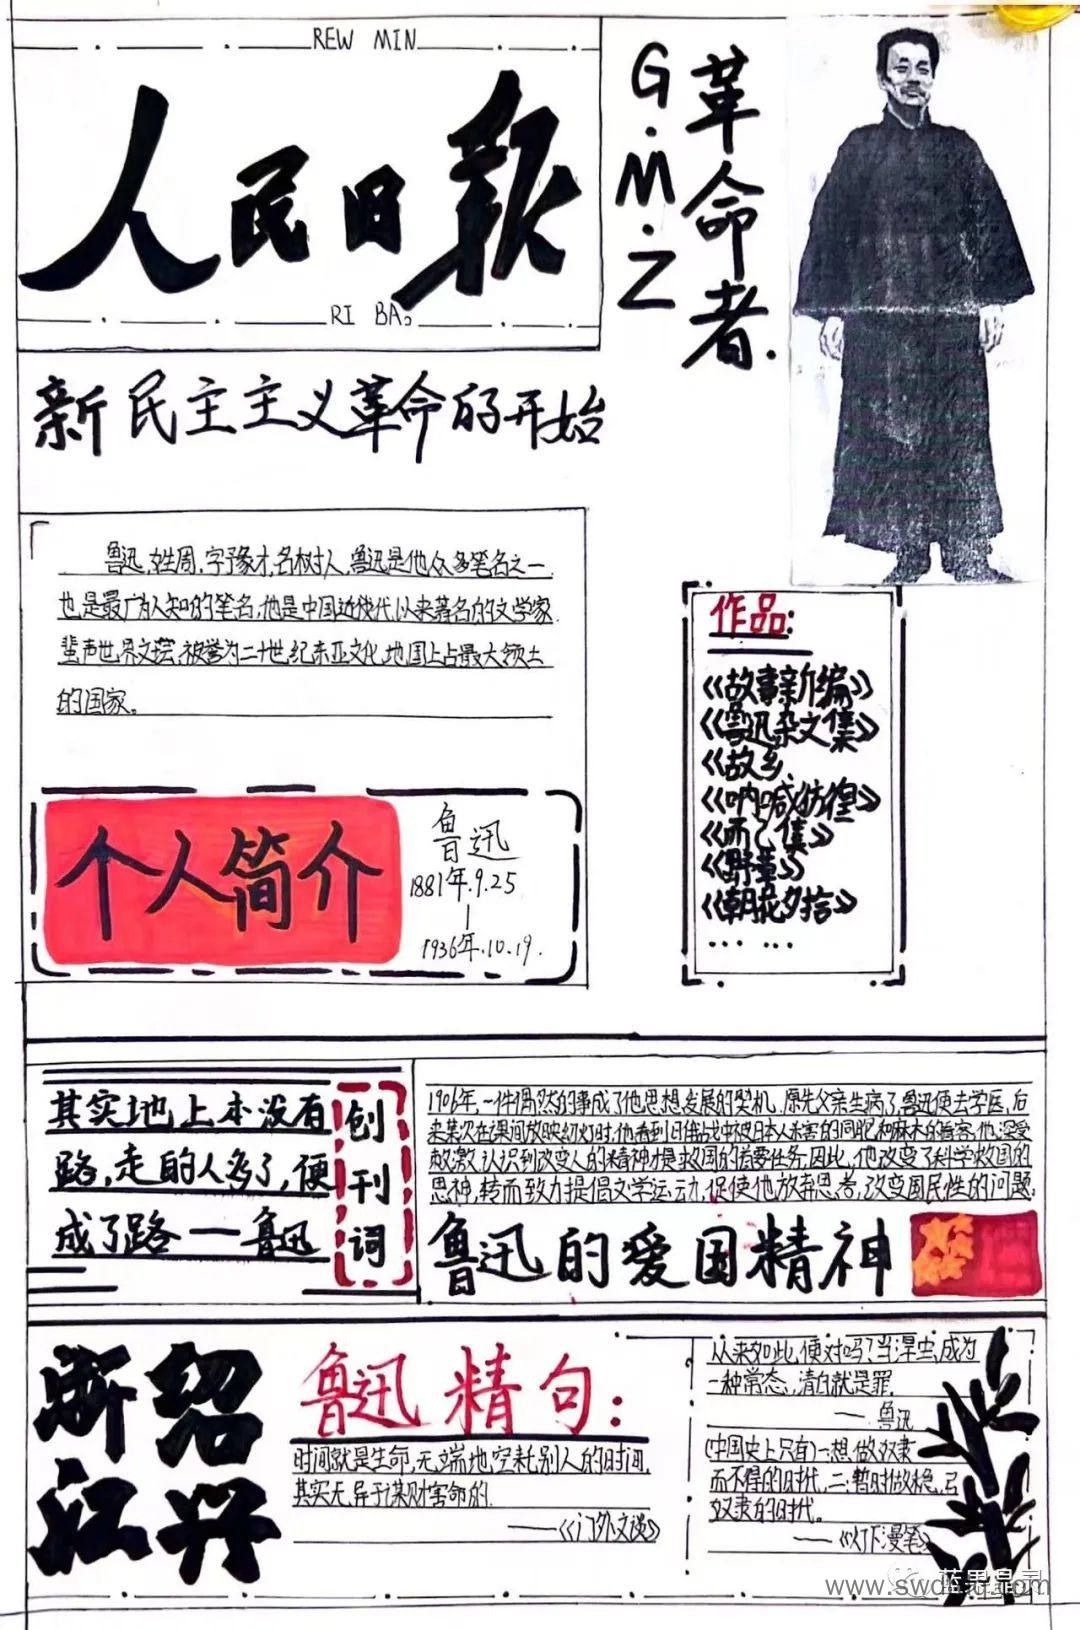 REW MIN
人民日报
RI BAo
G.M.Z
革命者.
新民主主义革命的开始
鲁迅,姓周,字豫才,名树人,鲁迅是他众多笔名之一
也是最广为人知的笔名,他是中国近代以来著名的文学家
蜚声世界文坛,被誉为二十世纪东亚文化地国上占最大领土
的国家。
个人简介
鲁迅
1881年.9.25
|
1936年.10.19.
作品:
《故事新编》
《鲁迅杂文集》
《故乡
《呐喊彷徨》
《而已集》
《野草》
《朝花夕拾》
... ...
其实地上本没有
路,走的人多了,便
成了路——鲁迅
创刊词
1906年,一件偶然的事成了他思想发展的契机.原先父亲生病了鲁迅便去学医,后
来某次在课间放映幻灯时,他看到日俄战中被日本人杀害的同胞和麻木的看客,他深受
刺激,认识到改变人的精神才是救国的首要任务,因此,他改变了科学救国的
思神,转而致力提倡文学运动,促使他放弃思考,改变国民性的问题.
鲁迅的爱国精神
浙江
绍兴
鲁迅精句:
时间就是生命,无端地空耗别人的时间,
其实无异于谋财害命的.
——《门外文谈》
从来如此,便对吗?当浑虫,成为
一种常态,清白就是罪.
——鲁迅
(中国史上只有)一:想做奴隶
而不得的时代,二:暂时做稳了
奴隶的时代。
——《灯下漫笔》
蓝果晶灵